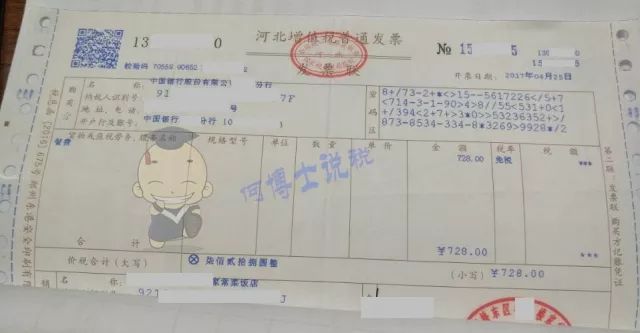 河北增值税普通发票
发票联
13 0
№ 15 5
校验码 70559 90652
开票日期: 2017年04月25日
名 称: 中国银行股份有限公 分行
纳税人识别号: 91 7F
地 址、电 话: 号
开户行及账号: 中国银行 分行 10
购买方
密码区
8+/73-2+*<>15--5617226</5+7
<714-3-1-90>4>8//55<531+0<1
+/394<2+7+>3*0>>53236352+>/
873-8534-334-8*3269>9928*/2
货物或应税劳务、服务名称 规格型号 单位 数量 单价 金额 税率 税额
餐费 728.00 免税 ***
何博士说税
合 计 ¥728.00 ***
价税合计(大写) ⊗ 柒佰贰拾捌圆整 (小写) ¥728.00
名 称: 家常菜饭店
921 J
第二联:发票联 购买方记账凭证